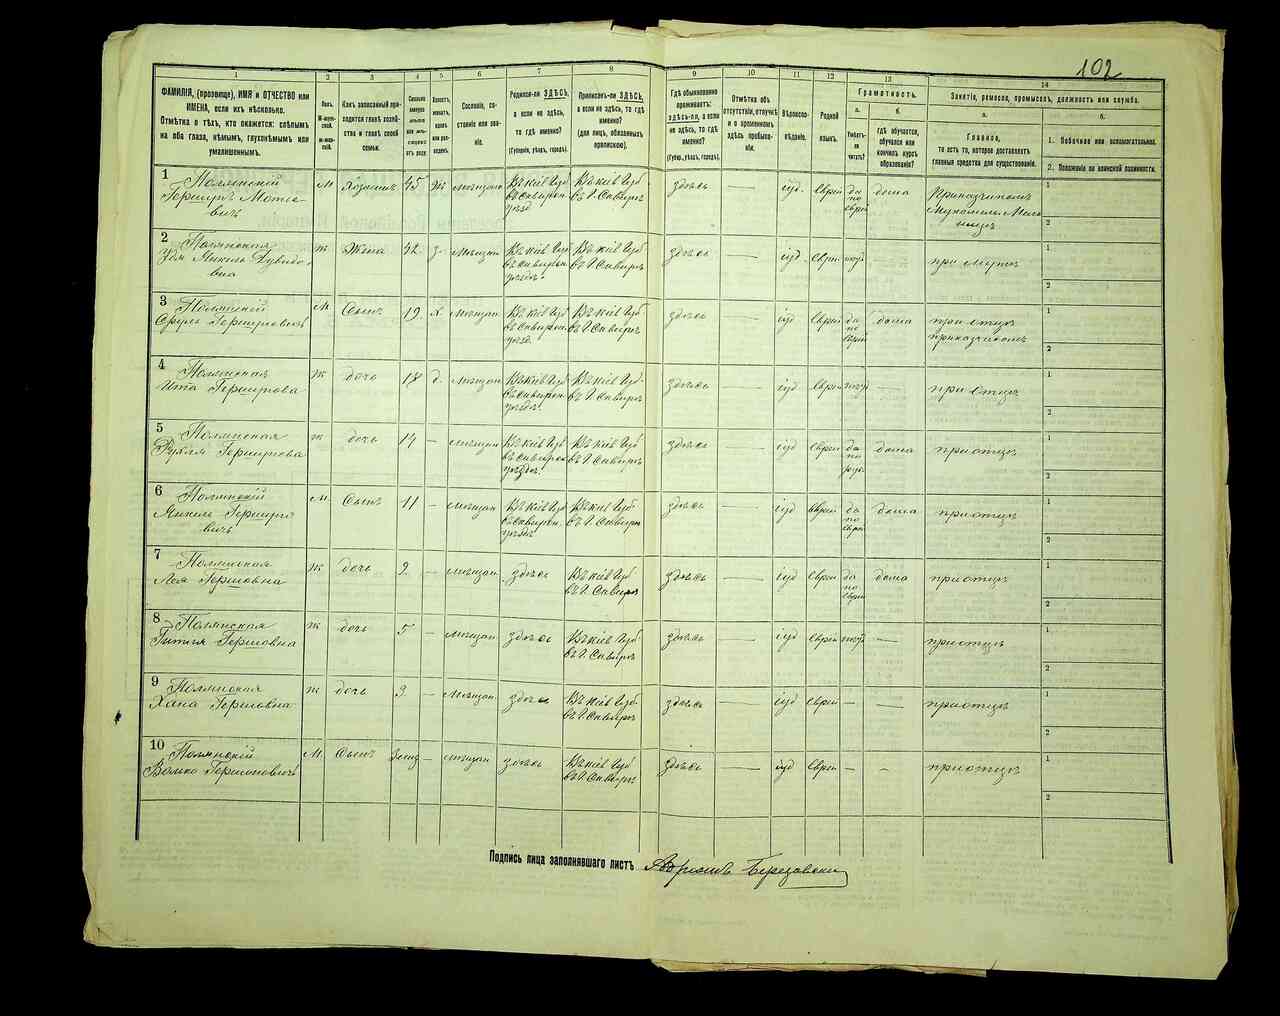 102
1 2 3 4 5 6 7 8 9 10 11 12 13 14
ФАМИЛІЯ, (прозвище), ИМЯ и ОТЧЕСТВО или
ИМЕНА, если ихъ нѣсколько.
Отмѣтка о тѣхъ, кто окажется: слѣпымъ
на оба глаза, нѣмымъ, глухонѣмымъ или
умалишеннымъ.
Полъ.
М-мужской.
Ж-женскій.
Какъ записанный приходится главѣ хозяйства и главѣ своей семьи.
Сословіе, состояніе или званіе.
Родился-ли ЗДѢСЬ,
а если не здѣсь,
то гдѣ именно?
(Губернія, уѣздъ, городъ).
Приписанъ-ли ЗДѢСЬ,
а если не здѣсь, то гдѣ
именно?
(для лицъ, обязанныхъ
припискою).
Гдѣ обыкновенно
проживаетъ:
здѣсь-ли, а если
не здѣсь, то гдѣ
именно?
(Губер., уѣздъ, городъ).
Отмѣтка объ
отсутствіи, отлучкѣ
и о временномъ
здѣсь пребываніи.
Вѣроисповѣданіе.
Родной
языкъ.
Грамотность.
а. б.
Умѣетъ-ли
читать?
гдѣ обучается,
обучался или
кончилъ курсъ
образованія?
Занятіе, ремесло, промыселъ, должность или служба.
а. б.
Главное,
то есть то, которое доставляетъ
главныя средства для существованія.
1. Побочное или вспомогательное.
2. Положеніе по воинской повинности.
1 Полянскій
Гершъ Мотелевичъ
М Хозяинъ 45 ж мѣщан. Въ Кіев Губ Въ Кіев Губ здѣсь — іуд. Еврей да дома Приказчикомъ
въ Сквирск. въ Г. Сквирѣ по
уѣзд. еврей
1
2
2 Полянская
Ж Жена 42 з. мѣщан Въ Кіев Губ Въ Кіев Губ здѣсь — іуд. Еврей при мужѣ
въ Сквирск. въ Г. Сквирѣ
уѣзд.
1
2
3 Полянскій
Сруль Гершоновичъ
М Сынъ 19. х. мѣщан. Въ Кіев Губ Въ Кіев Губ здѣсь — іуд Еврей да дома при отцѣ
въ Сквирск. въ Г. Сквирѣ по приказчикомъ
уѣзд. еврей
1
2
4 Полянская
Ита Гершонова
Ж дочь 18 д. мѣщан Въ Кіев Губ Въ Кіев Губ здѣсь — іуд Еврей при отцѣ
въ Сквирск. въ Г. Сквирѣ
уѣзд.
1
2
5 Полянская
Рухля Гершонова
Ж дочь 14 — мѣщан Въ Кіев Губ Въ Кіев Губ здѣсь — іуд Еврей да дома при отцѣ
въ Сквирск. въ Г. Сквирѣ по
уѣзд.
1
2
6 Полянскій
Янкель Гершоновичъ
М Сынъ 11 — мѣщан Въ Кіев Губ Въ Кіев Губ здѣсь — іуд Еврей да дома при отцѣ
въ Сквирск. въ Г. Сквирѣ по
уѣзд. еврей
1
2
7 Полянская
Лея Гершовна
Ж дочь 9. — мѣщан. здѣсь Въ Кіев Губ здѣсь — іуд Еврей да дома при отцѣ
въ Г. Сквирѣ по
еврей
1
2
8 Полянская
Гитля Гершовна
Ж дочь 5 — мѣщан. здѣсь Въ Кіев Губ здѣсь — іуд Еврей — при отцѣ
въ Г. Сквирѣ
1
2
9 Полянская
Хана Гершовна
Ж дочь 3. — мѣщан. здѣсь Въ Кіев Губ здѣсь — іуд Еврей — — при отцѣ
въ Г. Сквирѣ
1
2
10 Полянскій
Волько Гершоновичъ
М. Сынъ — мѣщан здѣсь Въ Кіев Губ здѣсь — іуд Еврей — — при отцѣ
въ Г. Сквирѣ
1
2
Подпись лица заполнявшаго листъ